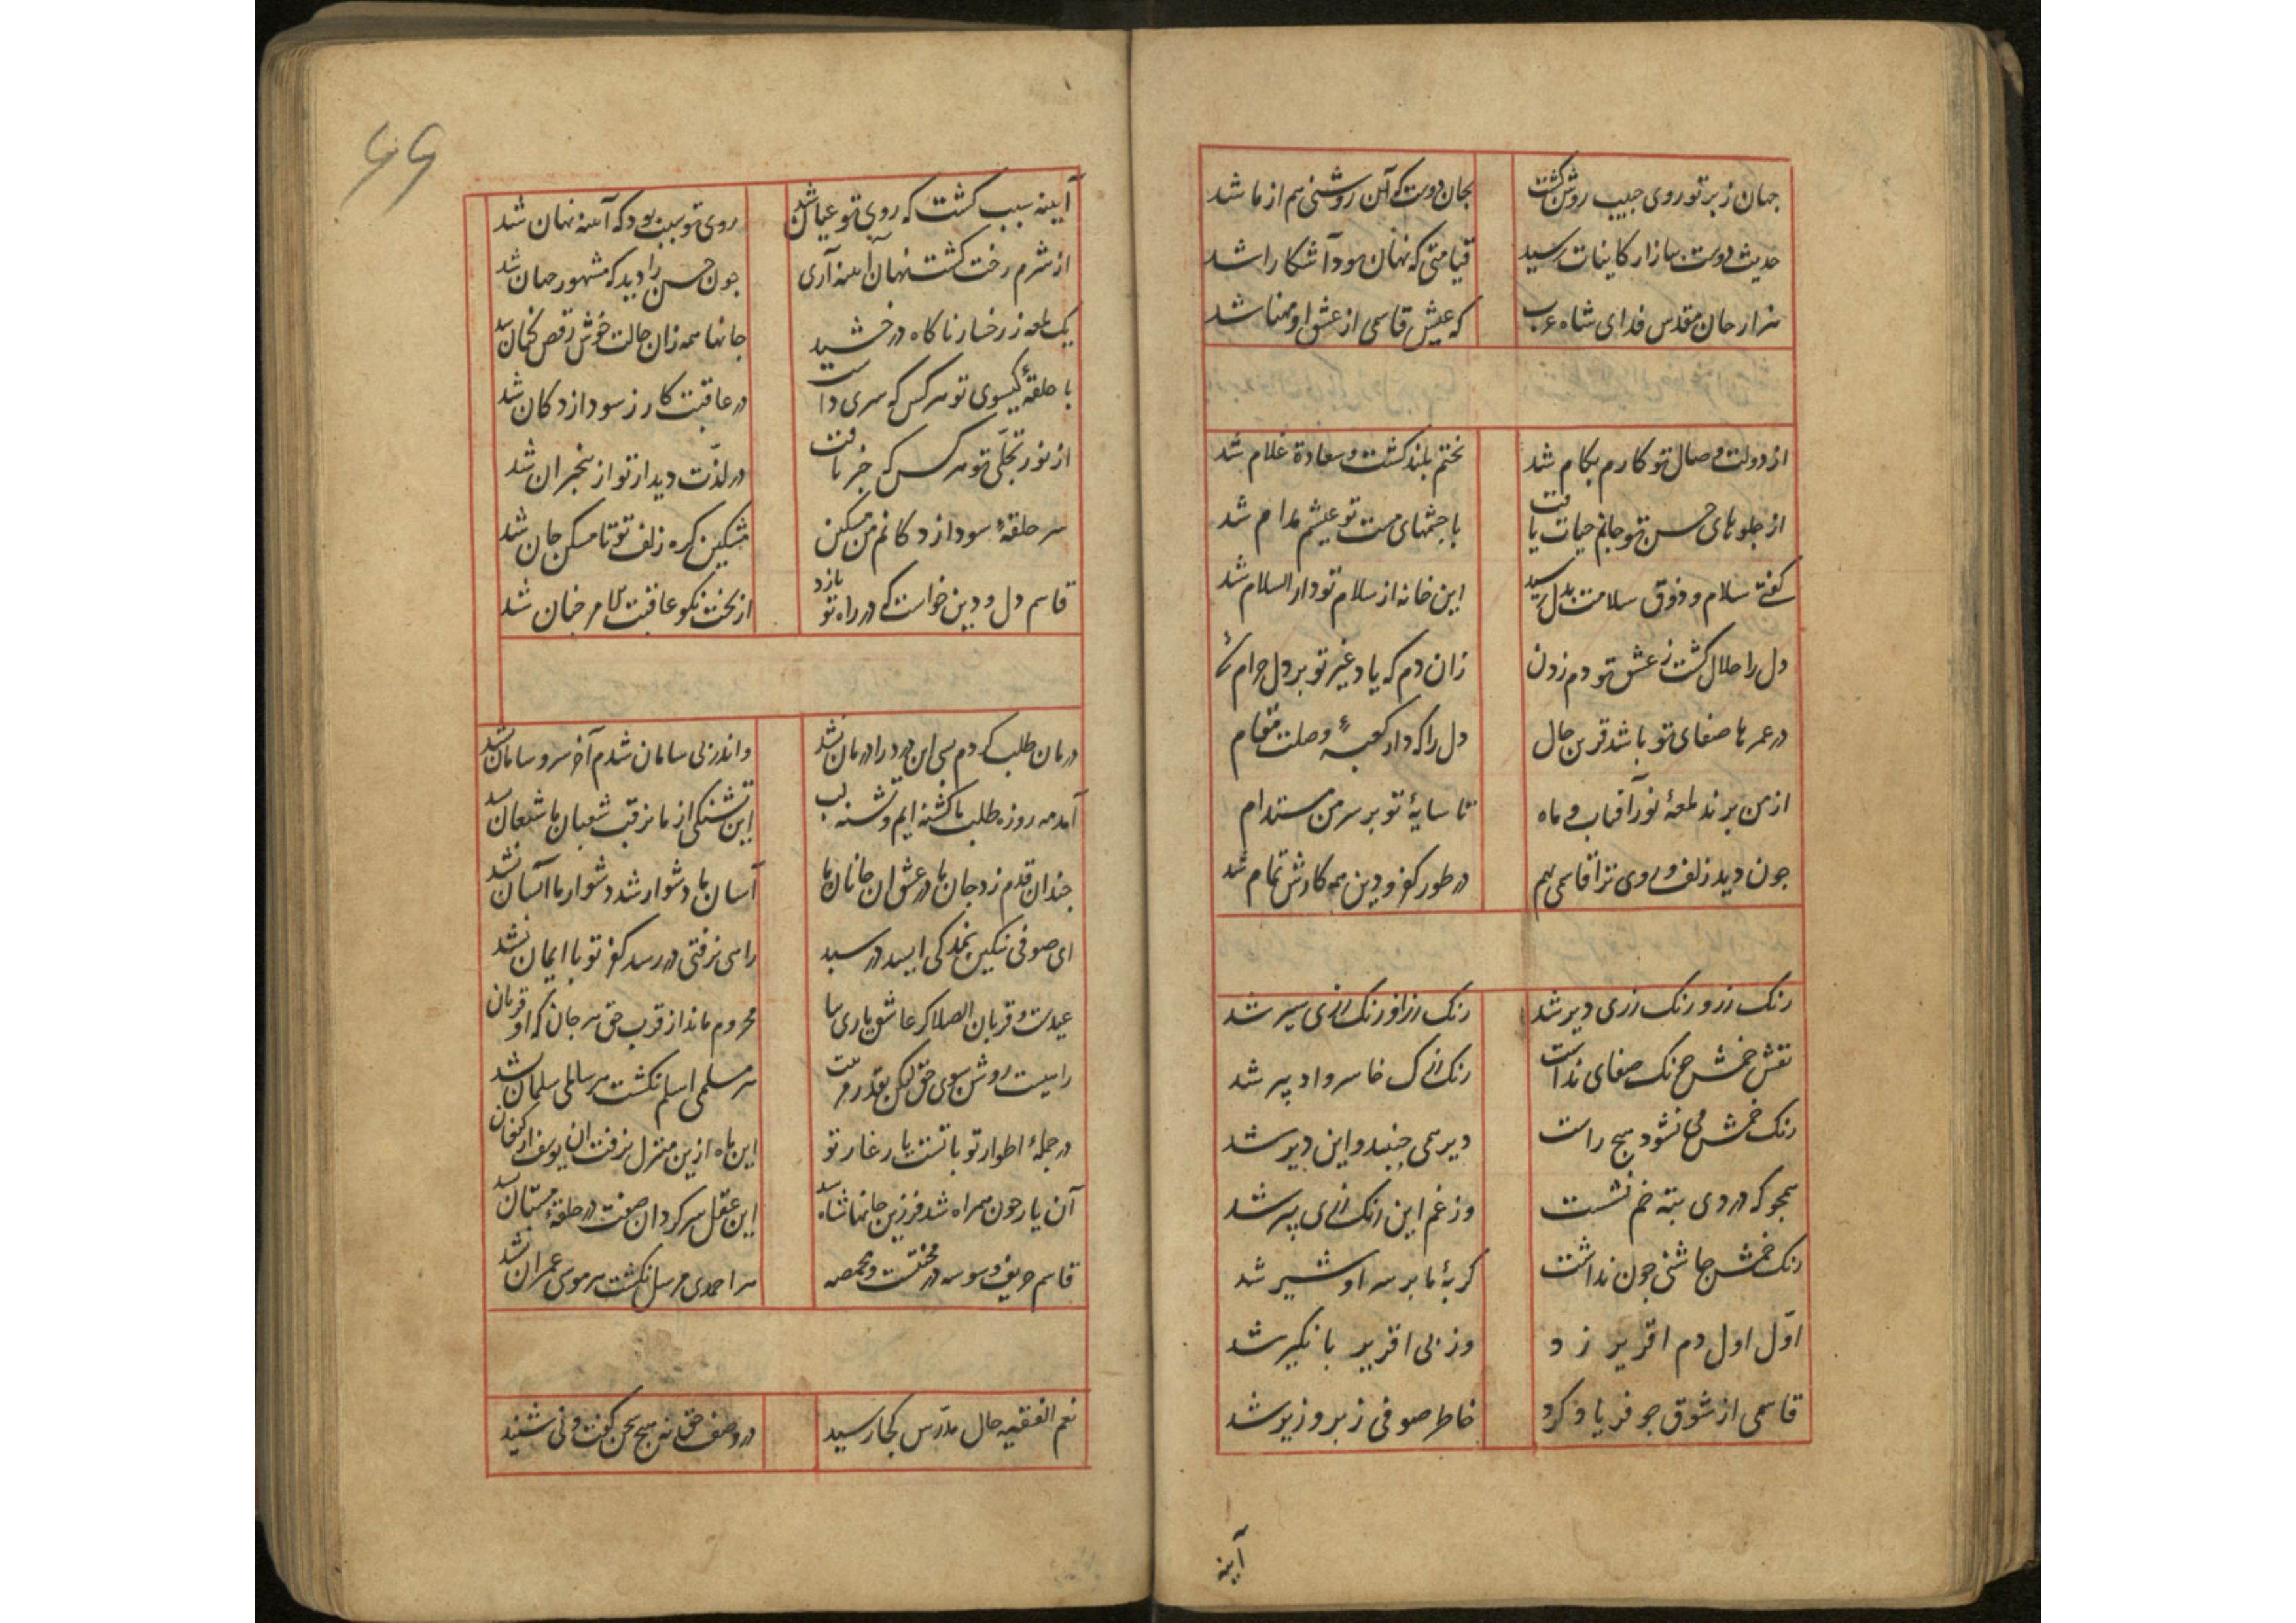 جهان ز پرتو روی حبیب روشن گشت
بجان دوست که آن روشنی هم از ما شد
حدیث دوست ببازار کاینات رسید
قیامتی که نهان بود آشکارا شد
هزار جان مقدس فدای شاه عرب
که عیش قاسمی از عشق او مهنا شد
از دولت وصال تو کارم بکام شد
بختم بلند کشت و سعادة غلام شد
از جلوهای حسن تو جانم حیات یافت
با چشمهای مست تو عیشم مدام شد
کفتی سلام و ذوق سلامت بدل رسید
این خانه از سلام تو دار السلام شد
دل را حلال کشت ز عشق تو دم زدن
زان دم که یاد غیر تو بر دل حرام شد
در عمرها صفای تو باشد قرین حال
دل را که داد کعبهٔ وصلت مقام
از من برند لمعهٔ نور آفتاب و ماه
تا سایهٔ تو بر سر من مستدام
جون دید زلف و روی ترا قاسمی بهم
در طور کفر و دین همه کارش تمام شد
رنک رز و رنک رزی دیر شد
رنک رز از رنک رزی سیر شد
نقش خمش جنک صفای نداشت
رنک رزک خاسر و ادبیر شد
رنک خمش می نشود هیچ راست
دیر همی جنبد و این دیر شد
همجو که دردی بته خم نشست
وز غم این رنک رزی پیر شد
رنک خمش جاشنی جون نداشت
کربهٔ ما بر سر او شیر شد
اوّل اول دم اقریر زد
وز پی اقریر بانکیر شد
قاسمی از شوق جو فریاد کرد
خاطر صوفی زبر و زیر شد
آیینه
۶۶
آیینه سبب کشت که روی تو عیان شد
روی تو سبب بود که آینه نهان شد
از شرم رخت کشت نهان آینه آری
جون حسن ترا دید که مشهور جهان شد
یک لمعه ز رخسار تو ناکاه درخشید
جانها همه زان حالت خوش رقص کنان شد
با حلقهٔ کیسوی تو هر کس که سری داشت
در عاقبت کار ز سودازدکان شد
از نور تجلّی تو هر کس که خبر یافت
در لذّت دیدار تو از بیخبران شد
سر حلقهٔ سودازدکانم من مسکین
مشکین کره زلف تو تا مسکن جان شد
قاسم دل و دین خواست که در راه تو بازد
از بخت نکو عاقبت الامر جنان شد
درمان طلب کردم بسی این درد را درمان نشد
واندر پی سامان شدم آخر سر و سامان نشد
آمد مه روزه طلب ما کشنه ایم و تشنه لب
این تشنکی از ما نرفت شعبان ما شعبان نشد
جندان قدم زد جان ما در عشق آن جانان ما
آسان ما دشوار شد دشوار ما آسان نشد
ای صوفی نکین نمد کی ایید در سبد
راهی نرفتی در رسد کفر تو با ایمان نشد
عیدست و قربان الصلا کر عاشق یاری بیا
محروم ماند از قرب حق هر جان که او قربان
راهیست روشن سوی حق لیکن بقدر مرتبت
هر مسلمی اسلم نکشت هر سلمی سلمان نشد
در جملهٔ اطوار تو با تست یار غار تو
این ماه ازین منزل نرفت آن یوسف از کنعان
آن یار جون همراه شد فرزین جانها شاه شد
این عقل سرکردان صفت در حلقهٔ مستان نشد
قاسم حریف وسوسه در محنتست و مخمصه
هر احمدی مرسل نکشت هر موسی عمران نشد
نعم الفقیه حال مدرّس بجا رسید
در وصف حق نه هیج سخن کفت و نی شنید